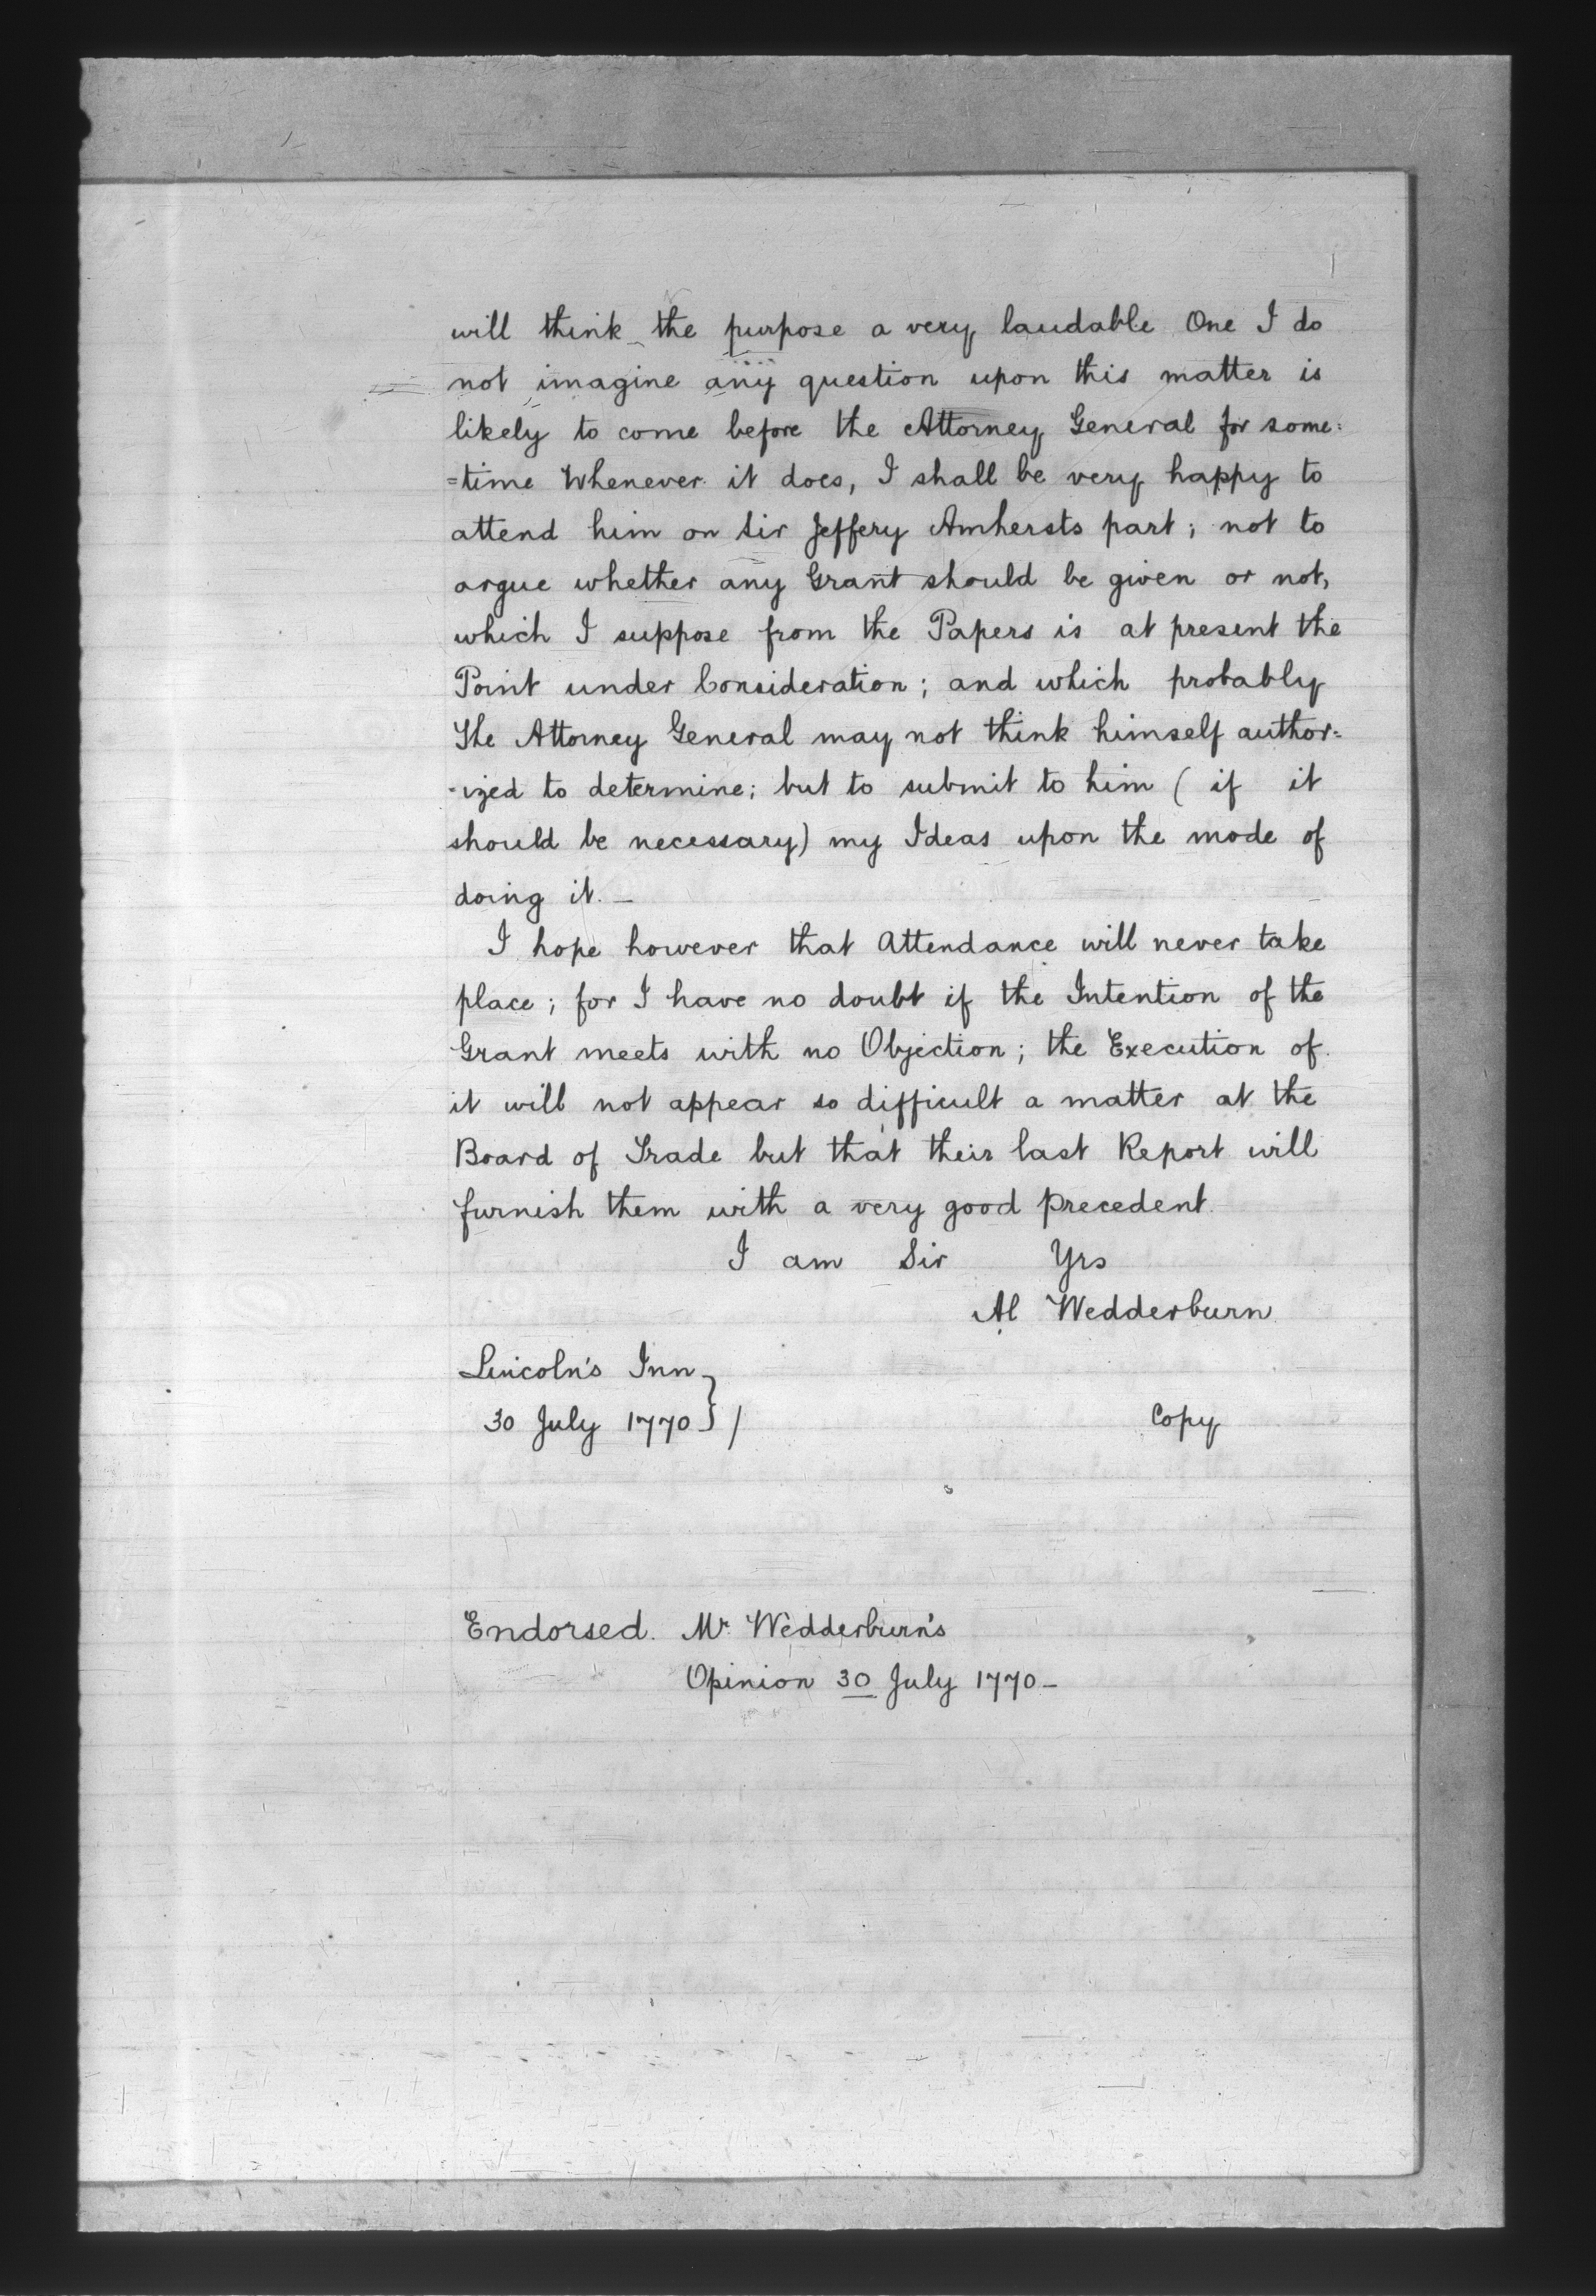 will think the purpose a very laudable One I do
not imagine any question upon this matter is
likely to come before the Attorney General for some=
=time Whenever it does, I shall be very happy to
attend him on Sir Jeffery Amhersts part; not to
argue whether any Grant should be given or not,
which I suppose from the Papers is at present the
Point under Consideration; and which probably
The Attorney General may not think himself author=
-ized to determine; but to submit to him (if it
should be necessary) my Ideas upon the mode of
doing it. —
I hope however that Attendance will never take
place; for I have no doubt if the Intention of the
Grant meets with no Objection; the Execution of
it will not appear so difficult a matter at the
Board of Trade but that their last Report will
furnish them with a very good precedent.
I am Sir Yrs
Al Wedderburn.
Lincoln's Inn
30 July 1770 } / Copy
Endorsed. Mr. Wedderburn's
Opinion 30 July 1770 —